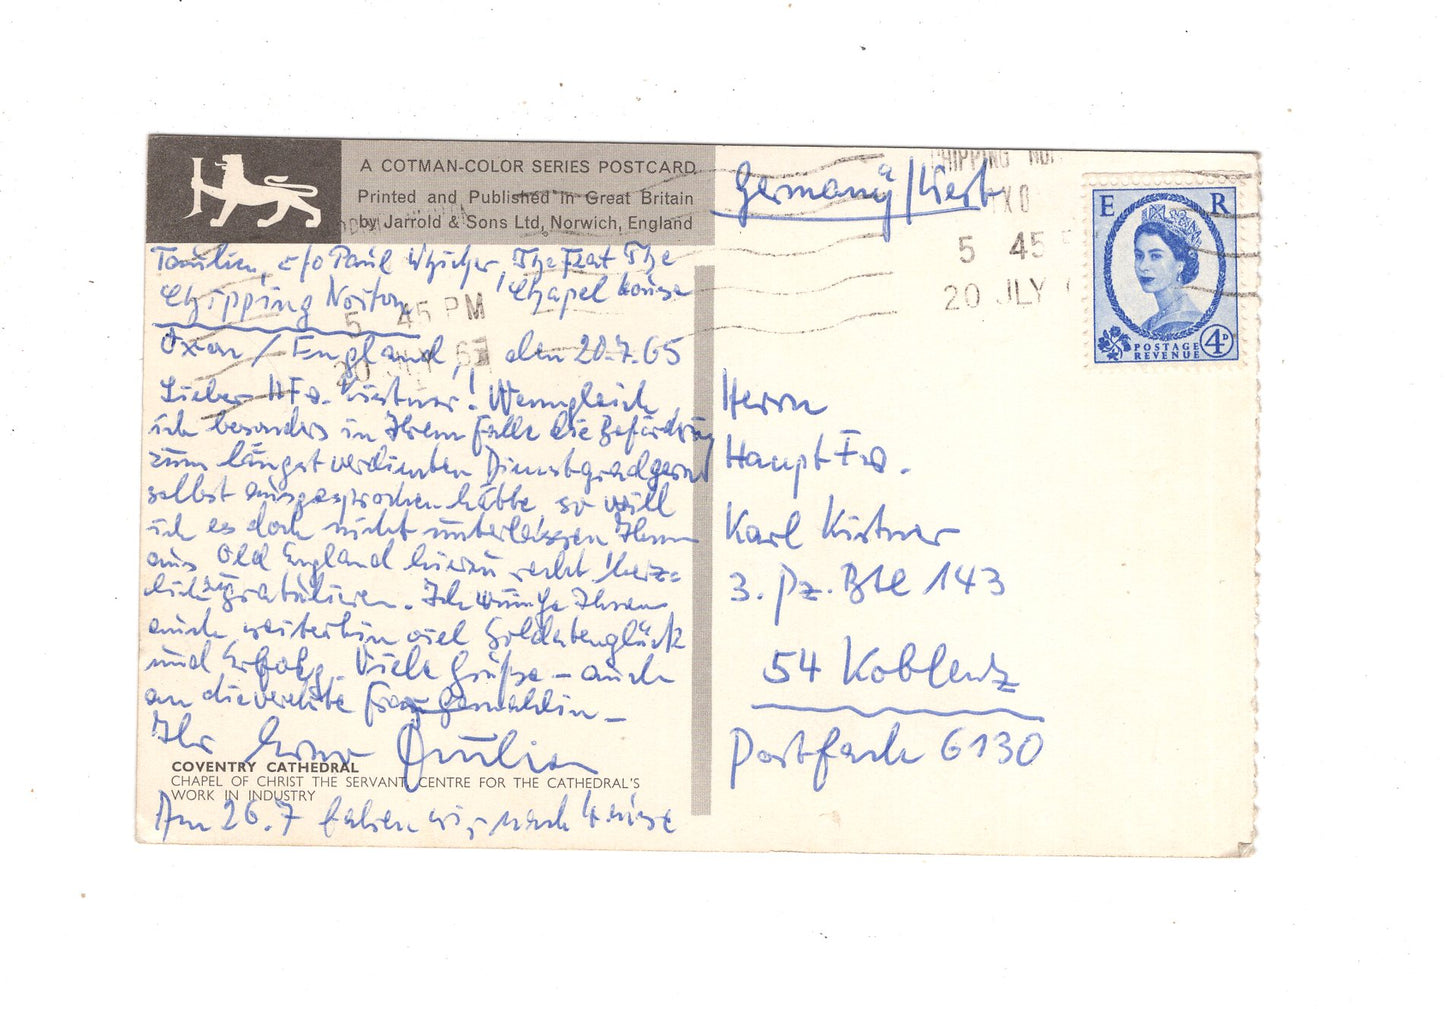 A COTMAN-COLOR SERIES POSTCARD
Printed and Published in Great Britain
by Jarrold & Sons Ltd, Norwich, England
c/o Paul Whicher, The Flat The
Chipping Norton, Chapel House
Oxon / England, den 20.7.65
Lieber HFw. Kirstner! Wenngleich
ich besonders in Ihrem Falle die Beförderung
zum längst verdienten Dienstgrad gerne
selbst ausgesprochen hätte, so will
ich es doch nicht unterlassen Ihnen
aus Old England hierzu recht herz=
lich zu gratulieren. Ich wünsche Ihnen
auch weiterhin viel Soldatenglück
und Erfolg. Viele Grüße – auch
an die verehrte Frau Gemahlin –
Ihr
COVENTRY CATHEDRAL
CHAPEL OF CHRIST THE SERVANT, CENTRE FOR THE CATHEDRAL'S
WORK IN INDUSTRY
Am 26.7 fahren wir nach Hause
5 45 PM
20 JLY 65
Germany/West
CHIPPING NOR
OXO
5 45
20 JLY
E R
POSTAGE
REVENUE
4D
Herrn
Haupt Fw.
Karl Kirstner
3. Pz. Btl 143
54 Koblenz
Postfach 6130